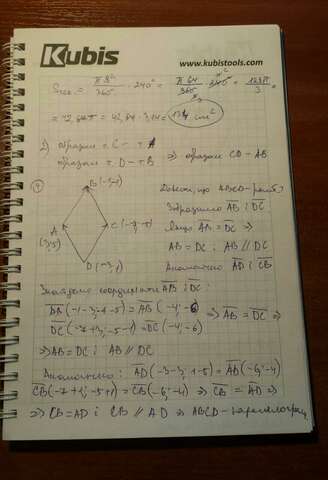 Kubis
www.kubistools.com
Sсек = π8²/360° · 240° = π 64/360° · 240° = 128π/3 =
= 42,66π = 42,66 · 3,14 = 134 см²
2) образом т. C - т. A
образом т. D - т. B ⇒ образом CD - AB
B(-1;-1)
A(3;5)
C(-7;-5)
D(-3;1)
ABCD - ромб?
Зобразимо AB і DC
Якщо AB = DC ⇒
AB = DC; AB // DC
Аналогічно AD і CB
Знайдемо координати AB і DC:
AB(-1-3;-1-5) = AB(-4;-6)
DC(-7+3;-5-1) = DC(-4;-6) ⇒ AB = DC ⇒
⇒ AB = DC і AB // DC
Аналогічно: AD(-3-3; 1-5) = AD(-6;-4)
CB(-7+1;-5+1) = CB(-6;-4) ⇒ CB = AD ⇒
⇒ CB = AD і CB // AD ⇒ ABCD - паралелограм